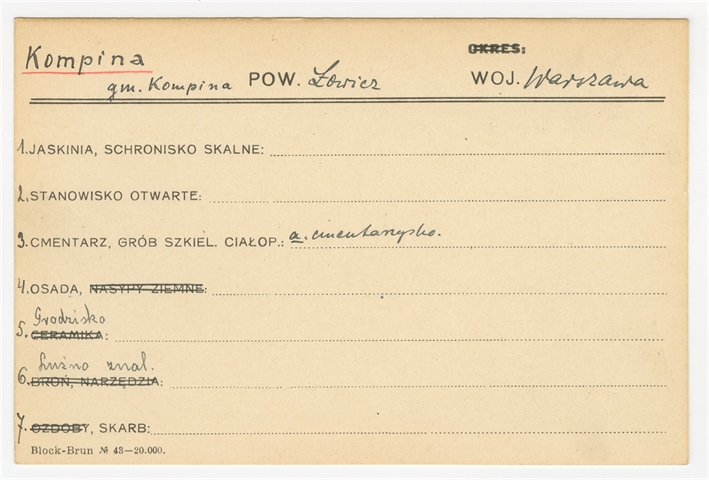 Kompina
OKRES:
gm. Kompina POW. Łowicz WOJ. Warszawa
1. JASKINIA, SCHRONISKO SKALNE:
2. STANOWISKO OTWARTE:
3. CMENTARZ, GRÓB SZKIEL. CIAŁOP.: a. cmentarzysko.
4. OSADA, NASYPY ZIEMNE:
Grodzisko
5. CERAMIKA:
Luźno znal.
6. BROŃ, NARZĘDZIA:
7. OZDOBY, SKARB:
Block-Brun № 43—20.000.